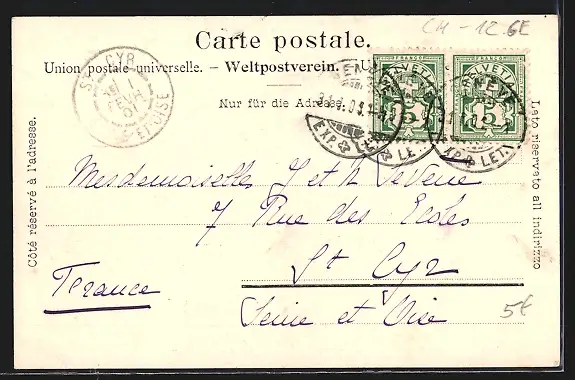 CH - 12.6E
Carte postale.
Union postale universelle. – Weltpostverein. –
Nur für die Adresse.
Côté réservé à l'adresse.
Lato riservato all indirizzo
ST CYR
ET-OISE
FRANCO
HELVETIA
5
FRANCO
HELVETIA
5
EXP. LETT.
EXP. LETT.
Mesdemoiselles Y et M Levene
7 Rue des Ecoles
St Cyr
France
Seine et Oise
5€